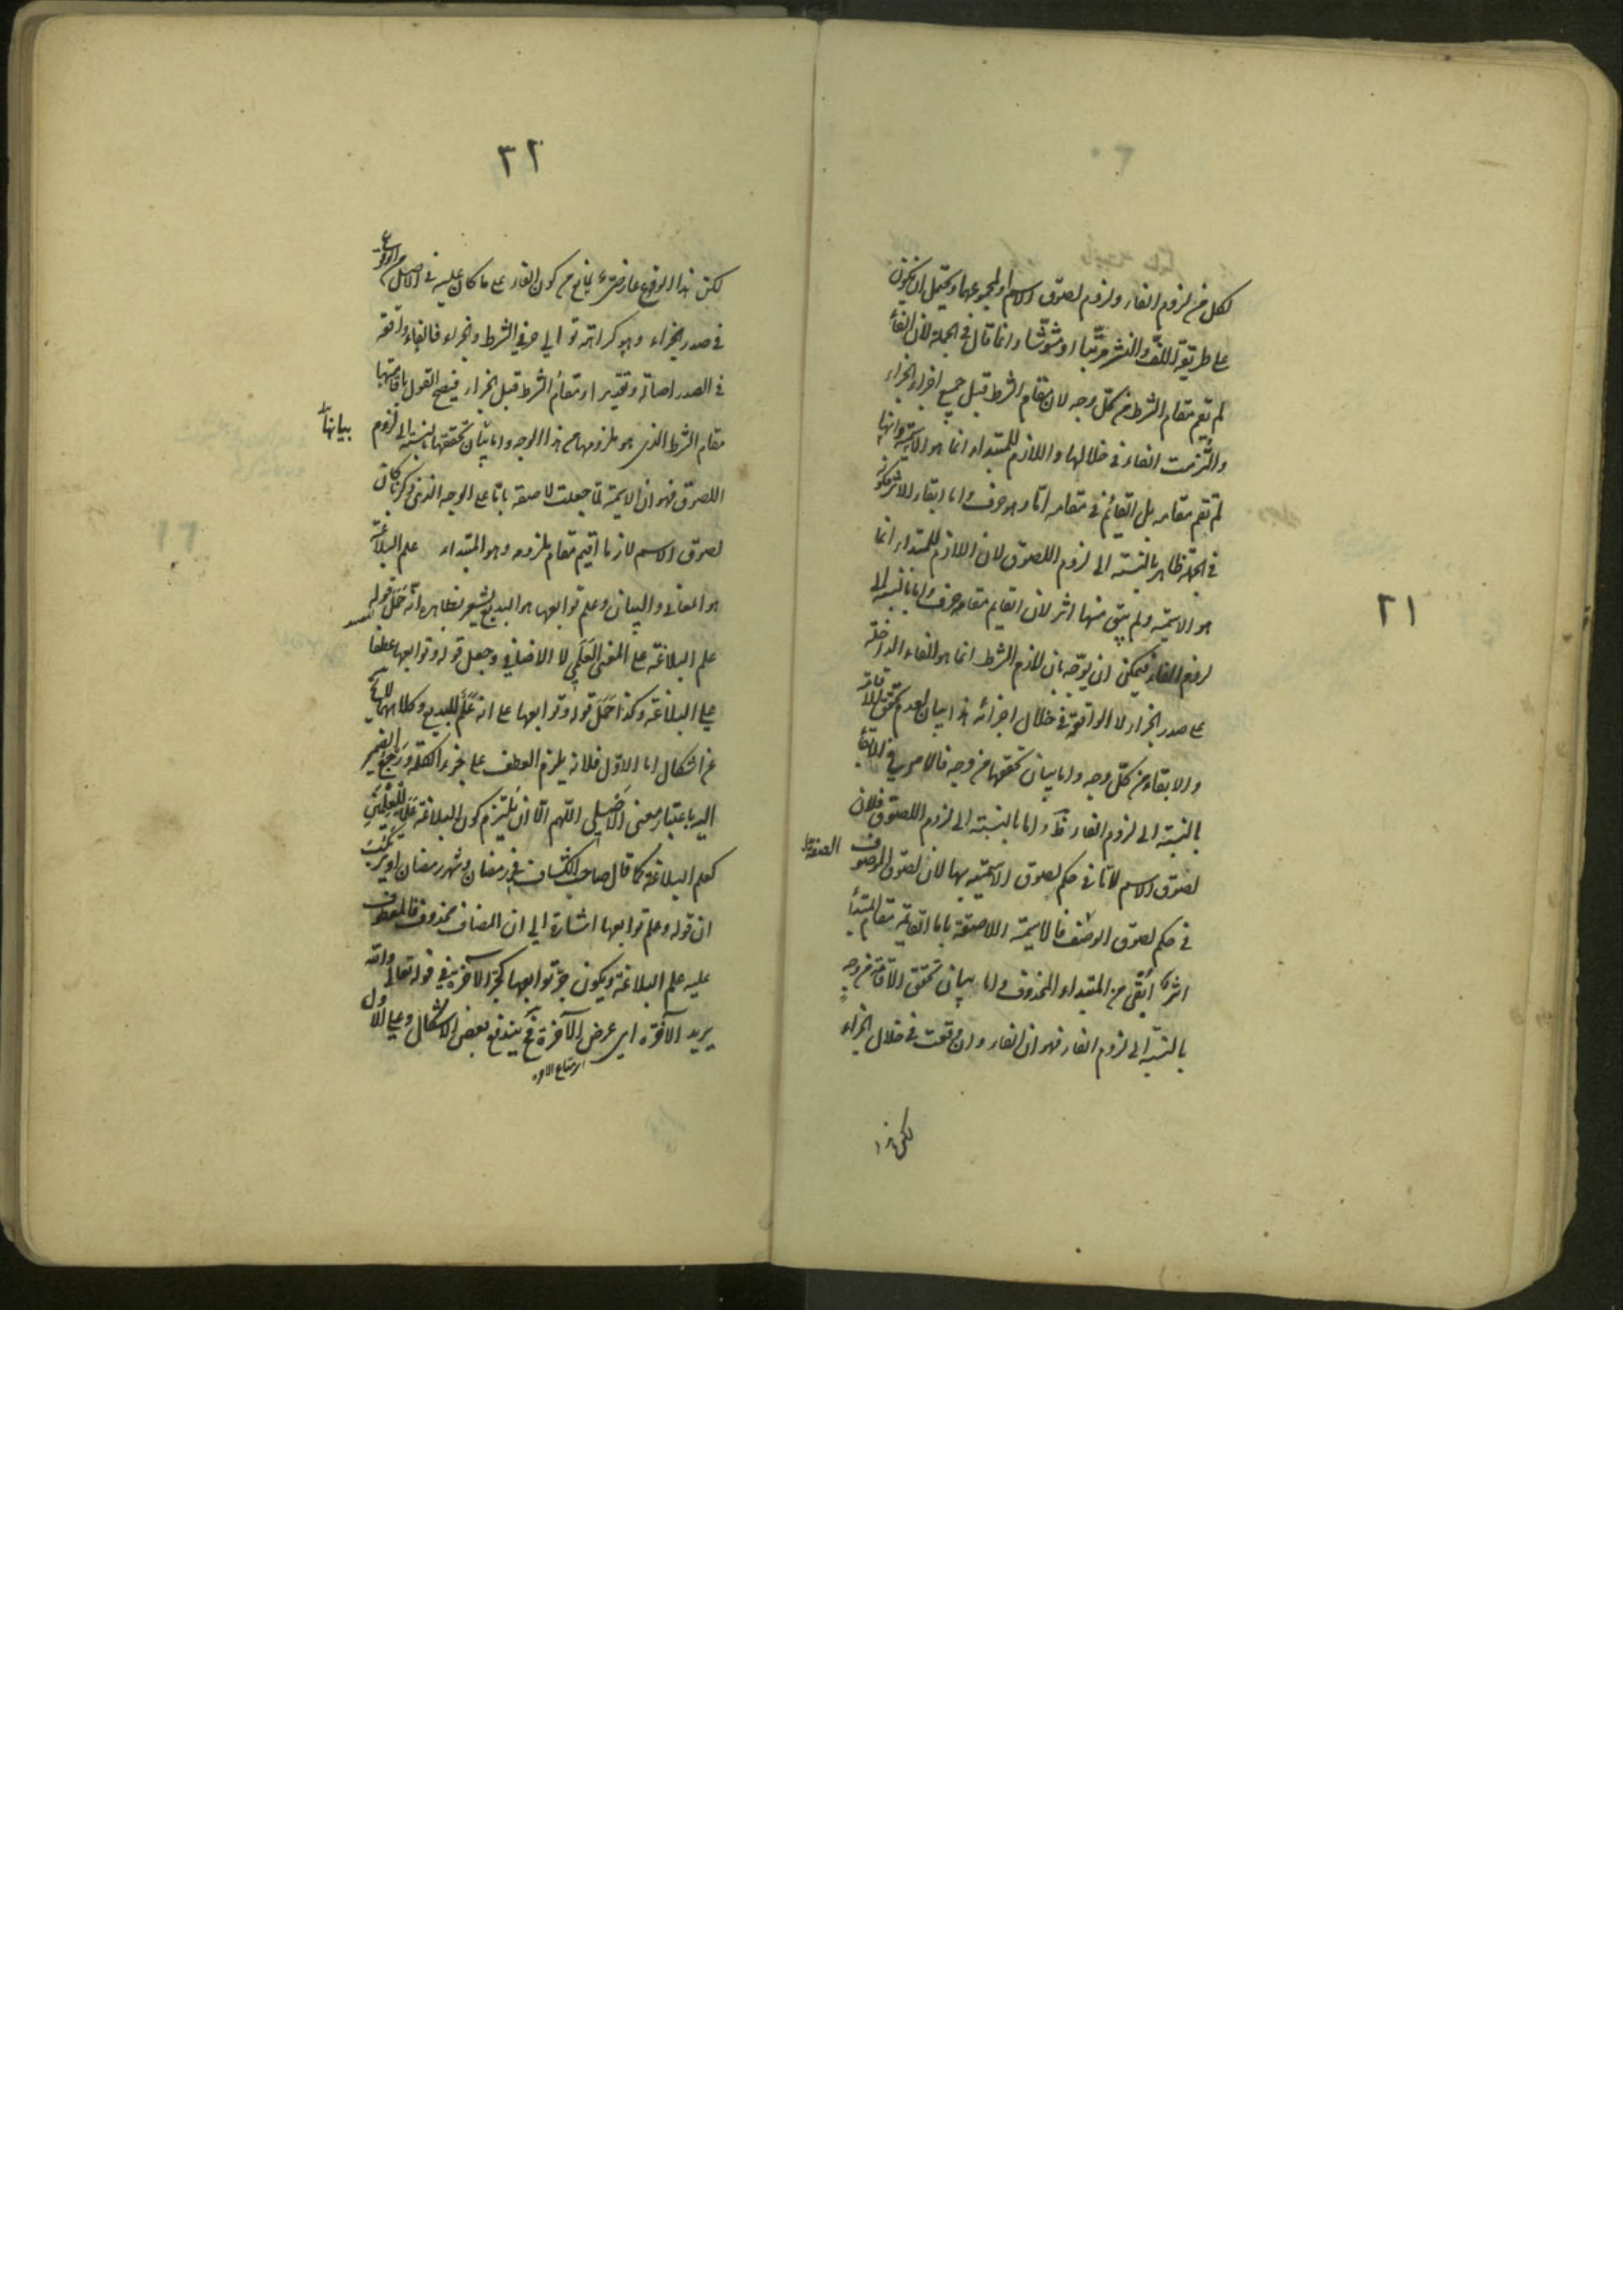 ٢١
لكل من لزوم الفاء ولزوم لصوق الاسم او لمجموعهما ويحتمل ان يكون
على طريقة اللف والنشر مرتبا او مشوشا وانما قال في الجملة لان الفاء
لم تقم مقام الشرط من كل وجه لان مقام الشرط قبل جميع اجزاء الجزاء
والتزمت الفاء في خلالها واللازم للمبتداء انما هو الاسمية وانها
لم تقم مقامه بل القائم في مقامه اما وهو حرف واما ابقاء الاثر
في الجملة فظاهر بالنسبة الى لزوم اللصوق لان اللازم للمبتداء انما
هو الاسمية ولم يبق منها اثر لان القايم مقامه حرف واما بالنسبة الى
لزوم الفاء فيمكن ان يوجه بان لازم الشرط انما هو الفاء الداخلة
على صدر الجزاء لا الواقعة في خلال اجزائه هذا بيان لعدم تحقق الاقامة
والابقاء من كل وجه واما بيان تحققهما من وجه فالامر في الابقاء
بالنسبة الى لزوم الفاء ظ واما بالنسبة الى لزوم اللصوق فلان
لصوق الاسم لاما في حكم لصوق الاسمية بها لان لصوق الموصوف الصفة
في حكم لصوق الوصف فالاسمية اللاصقة باما القايمة مقام المبتدأ
اثر ابقى من المبتداء المحذوف واما بيان تحقق الاقامة من وجه
بالنسبة الى لزوم الفاء فهو ان الفاء وان وقعت في خلال الجزاء
لكن هذا
٢٢
لكن هذا الوقوع عارضي مانع من كون الفاء على ما كان عليه في الاصل من الوقوع
في صدر الجزاء وهو كراهة توالي حرفي الشرط والجزاء فالفاء واقعة
في الصدر اصالة وتقديرا ومقام الشرط قبل الجزاء فيصح القول باقامتها
مقام الشرط الذي هو ملزومها من هذا الوجه واما بيان تحققها بالنسبة الى لزوم
بيانها
اللصوق فهو ان الاسمية لما جعلت لاصقة باما على الوجه الذي ذكرنا كان
لصوق الاسم لازما اقيم مقام ملزومه وهو المبتداء علم البلاغة
هو المعاني والبيان وعلم توابعها هو البديع يشعر بظاهره انه حمل قوله
علم البلاغة على المعنى العلمي لا الاضافي وجعل قوله وتوابعها عطفا
على البلاغة وكذا حمل قوله وتوابعها على انه علم للبديع وكلاهما لا يخ
عن اشكال اما الاول فلانه يلزم العطف على جزء الكلمة ورجع الضمير
اليه باعتبار معنى الاصلي اللهم الا ان يلتزم كون البلاغة علما
كعلم البلاغة كما قال صاحب الكشاف في رمضان وشهر رمضان او يرتكب
ان قوله وعلم توابعها اشارة الى ان المضاف محذوف فالمعطوف
عليه علم البلاغة ويكون جر توابعها كجر الآخرة في قوله تعالى والله
يريد الآخرة اي عرض الآخرة فح يندفع بعض الاشكال وعلى الاول